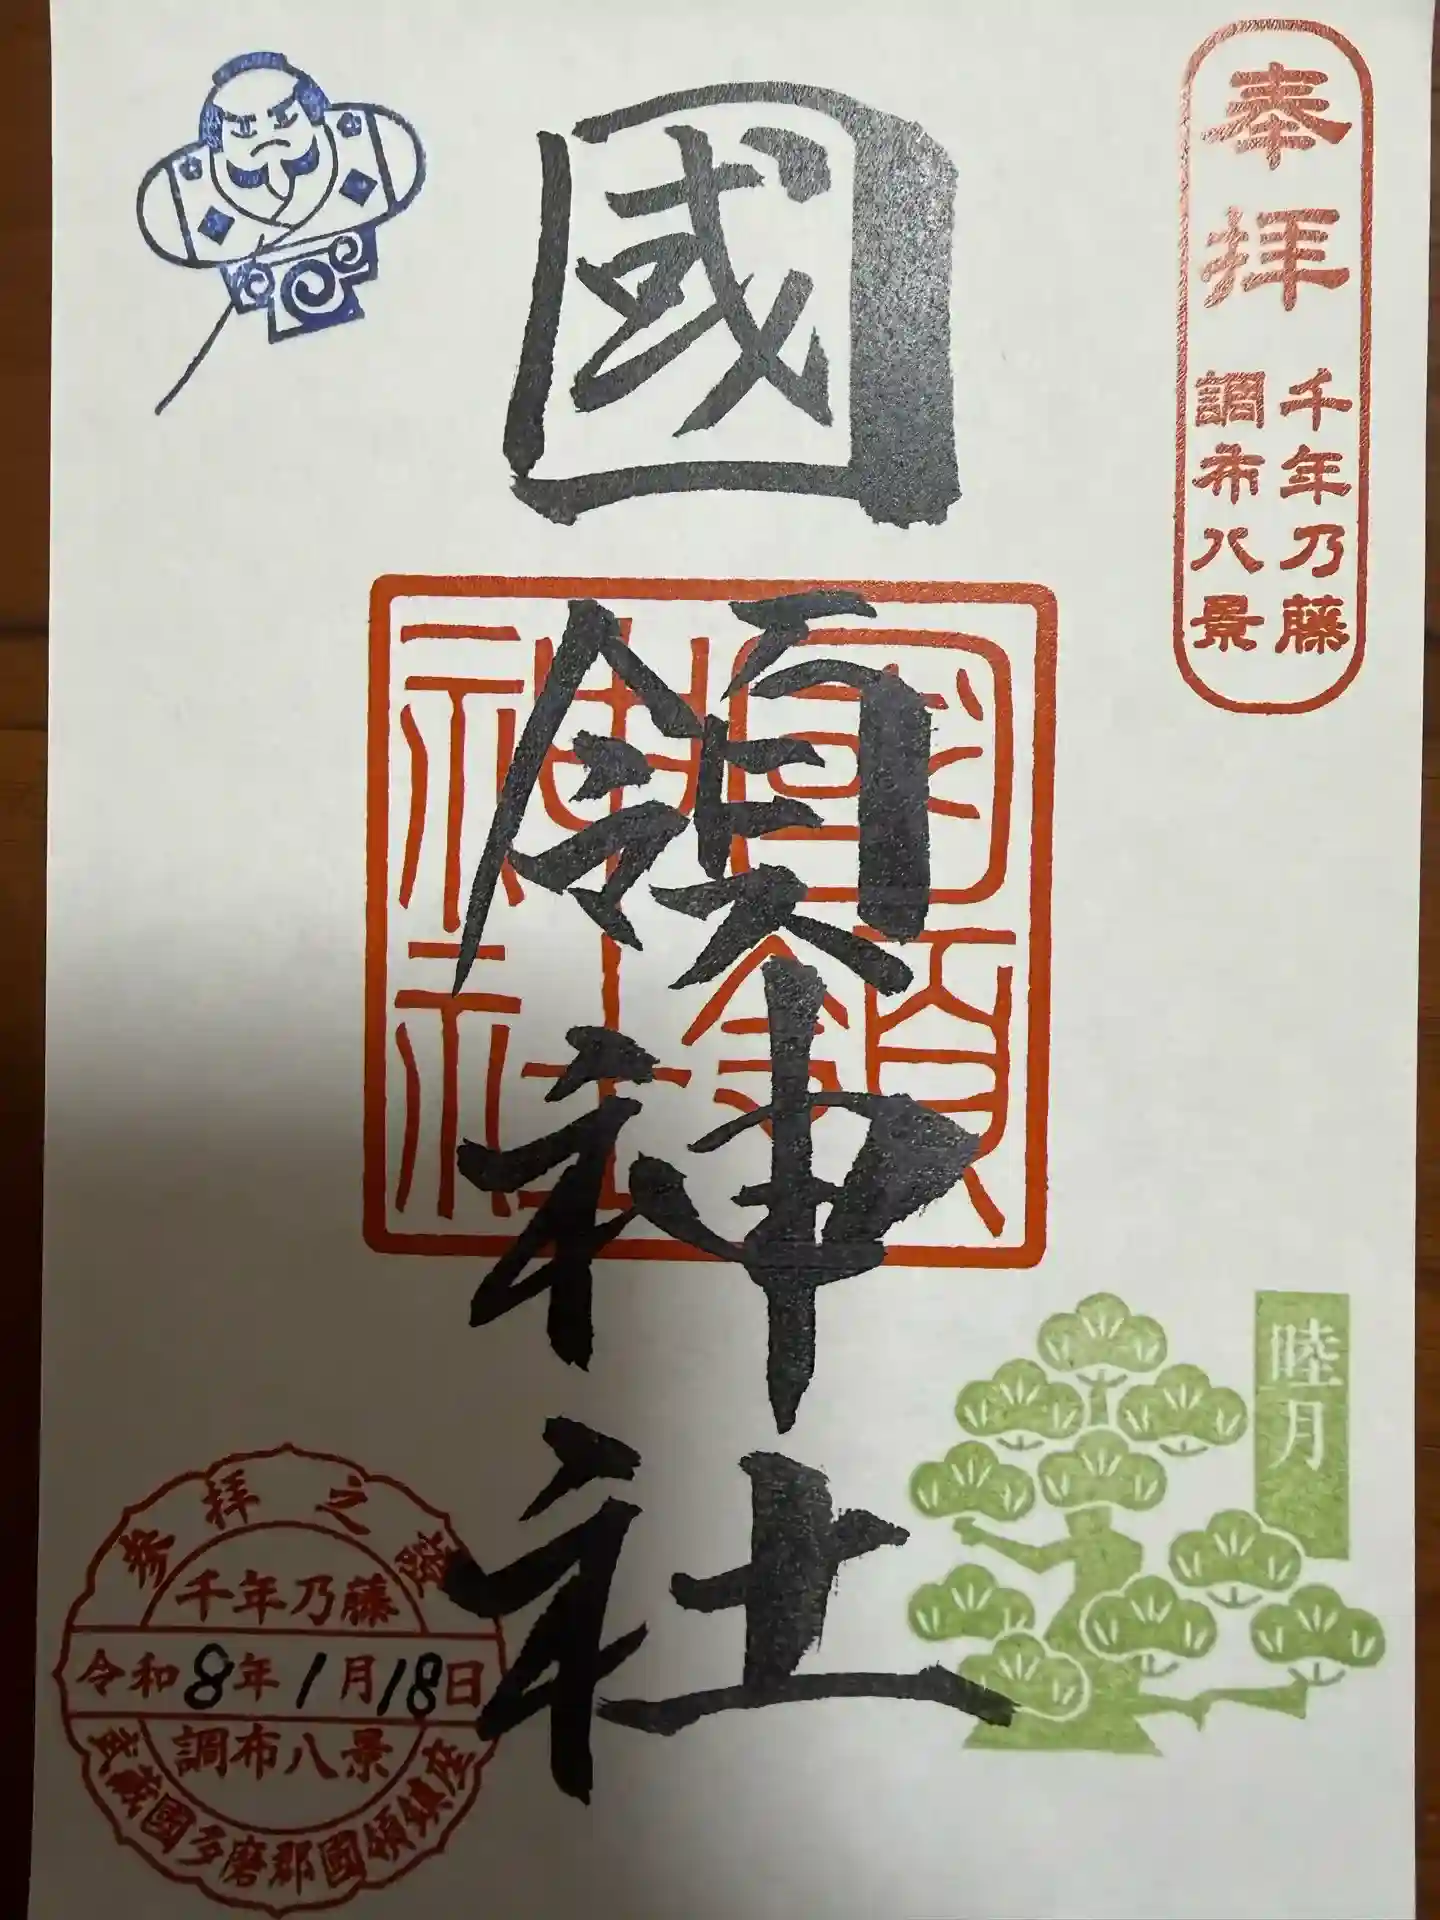 奉拝
千年乃藤
調布八景
國領神社
國領
神社
睦月
参拝之證
千年乃藤
令和8年1月18日
調布八景
武蔵國多磨郡國領鎮座